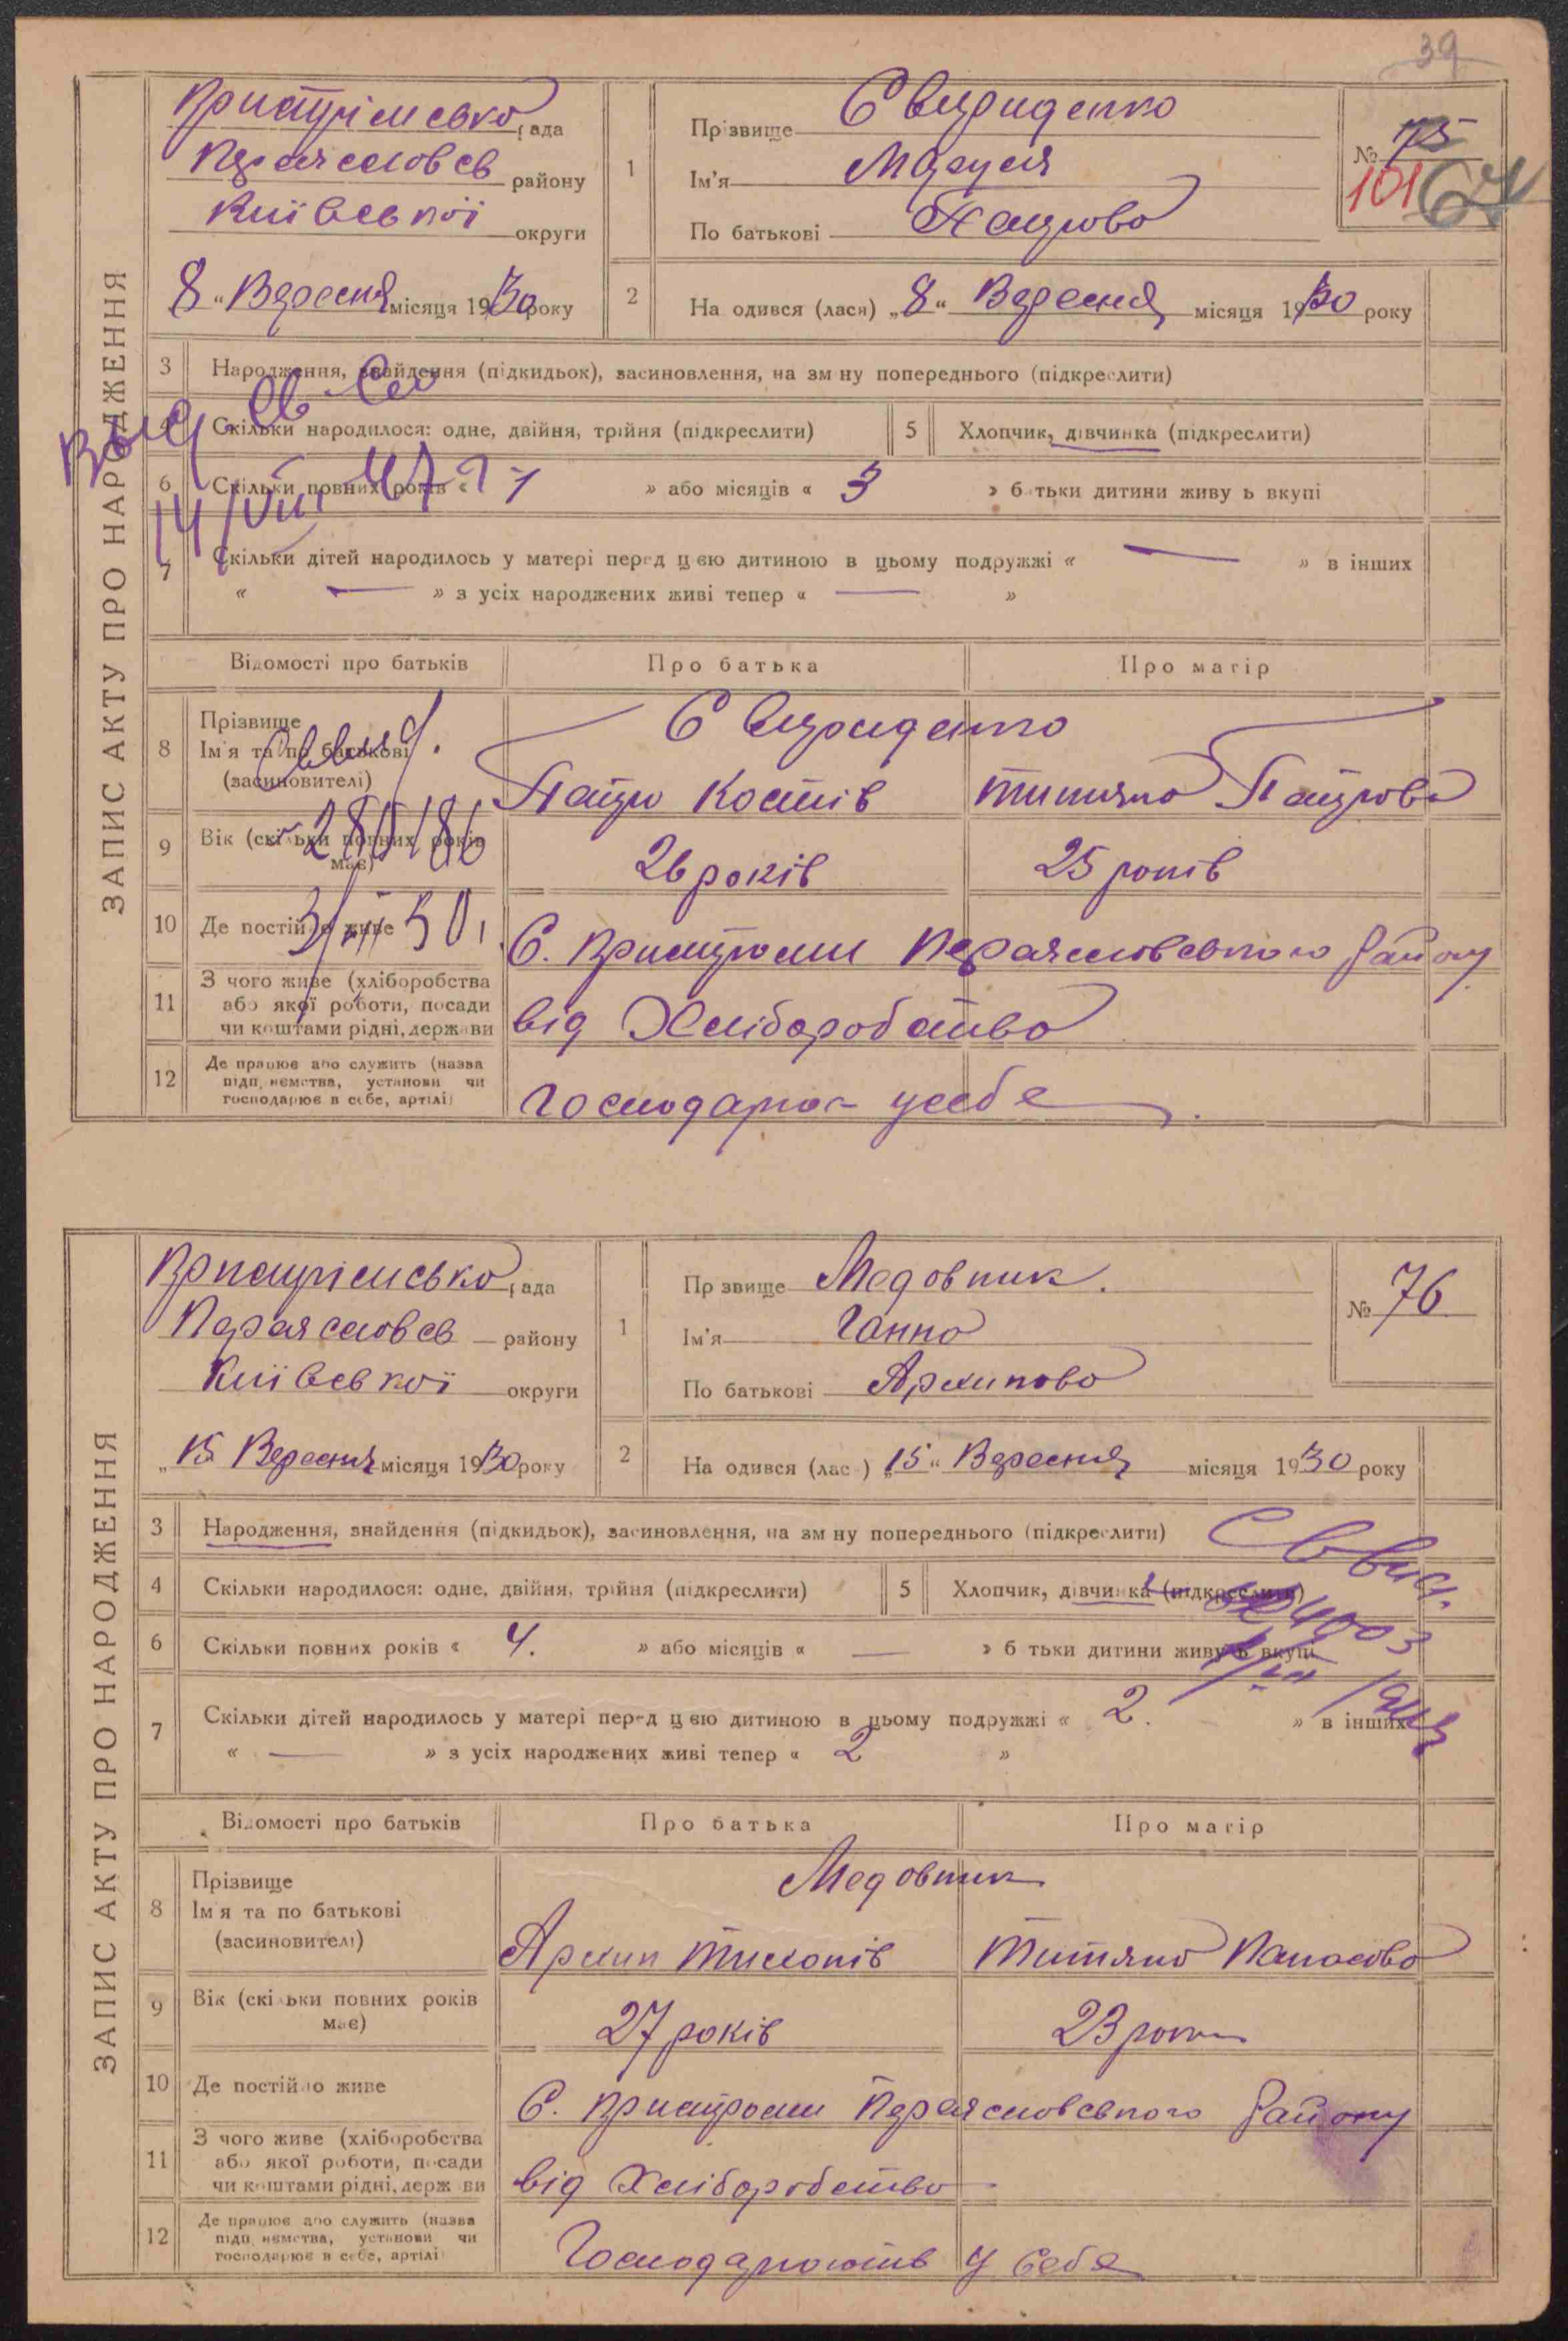 39
ЗАПИС АКТУ ПРО НАРОДЖЕННЯ
Пристрімсько рада
Переясловсь району
Київської округи
8 " Вересня місяця 1930 року
1
Прізвище Свириденко
Ім'я Маруся
По батькові Петрова
№ 75
101
67
2
Народився (лася) „8“ Вересня місяця 1930 року
3 Народження, знайдення (підкидьок), засиновлення, на зміну попереднього (підкреслити)
4 Скільки народилося: одне, двійня, трійня (підкреслити)
5 Хлопчик, дівчинка (підкреслити)
6 Скільки повних років « 1 » або місяців « 3 » батьки дитини живуть вкупі
14/VIII 47 г
7 Скільки дітей народилось у матері перед цією дитиною в цьому подружжі « — » в інших
« — » з усіх народжених живі тепер « — »
Відомості про батьків Про батька Про матір
8 Прізвище
Ім'я та по батькові
(засиновителі)
Свириденко
Петро Костів Титяна Петрова
9 Вік (скільки повних років має) 26 років 25 років
10 Де постійно живе С. Пристроми Переясловського Району
11 З чого живе (хліборобства
або якої роботи, посади
чи коштами рідні, держави
від Хліборобства
12 Де працює або служить (назва
підприємства, установи чи
господарює в себе, артілі)
усебе
ЗАПИС АКТУ ПРО НАРОДЖЕННЯ
Пристрімсько рада
Переясловсь району
Київської округи
„15 Вересня місяця 1930 року
1
Прізвище Медовник.
Ім'я Ганна
По батькові Архипова
№ 76
2
Народився (лася) „15“ Вересня місяця 1930 року
3 Народження, знайдення (підкидьок), засиновлення, на зміну попереднього (підкреслити)
4 Скільки народилося: одне, двійня, трійня (підкреслити)
5 Хлопчик, дівчинка (підкреслити)
6 Скільки повних років « 4. » або місяців « — » батьки дитини живуть вкупі
7 Скільки дітей народилось у матері перед цією дитиною в цьому подружжі « 2. » в інших
« — » з усіх народжених живі тепер « 2 »
Відомості про батьків Про батька Про матір
8 Прізвище
Ім'я та по батькові
(засиновителі)
Медовник
Архип Тихонів Титяна Панасова
9 Вік (скільки повних років має) 27 років 23 роки
10 Де постійно живе С. Пристроми Переясловського Району
11 З чого живе (хліборобства
або якої роботи, посади
чи коштами рідні, держави
від Хліборобства
12 Де працює або служить (назва
підприємства, установи чи
господарює в себе, артілі)
Господарюють у себе